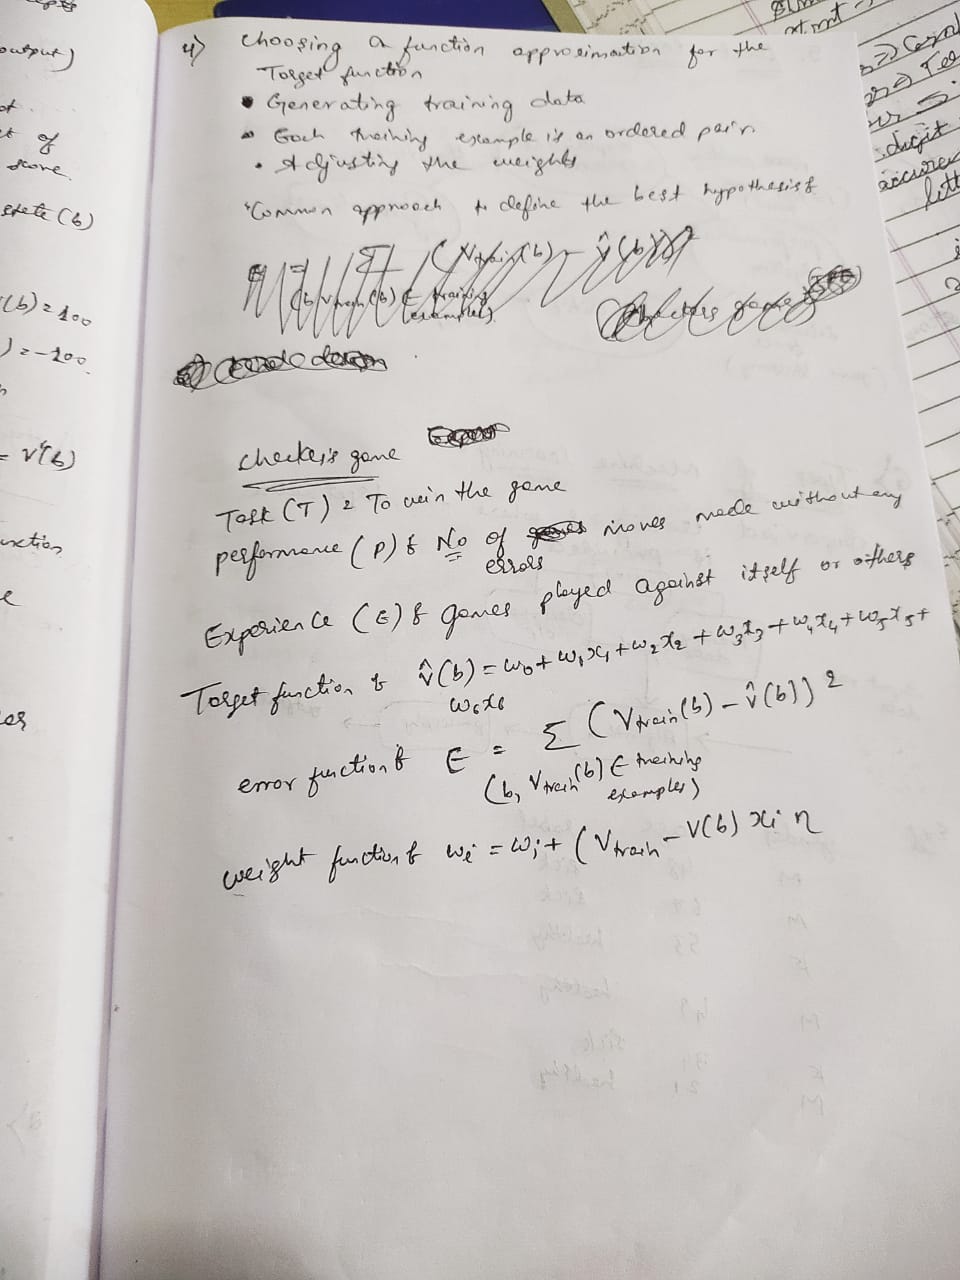 4) choosing a function approximation for the
Target function
• Generating training data
• Each training example is an ordered pair.
• Adjusting the weights
Common approach to define the best hypothesis :
checkers game
Task (T) : To win the game
performance (P) : No of moves made without any
errors
Experience (E) : games played against itself or others
Target function : v̂(b) = w0 + w1x1 + w2x2 + w3x3 + w4x4 + w5x5 +
w6x6
error function : E = Σ (Vtrain(b) - v̂(b))²
(b, Vtrain(b) ∈ training
examples)
weight function : wi = wi + (Vtrain - V(b) xi η
output)
of
score.
state (b)
(b) = 100
) = -100
= v̂(b)
digit